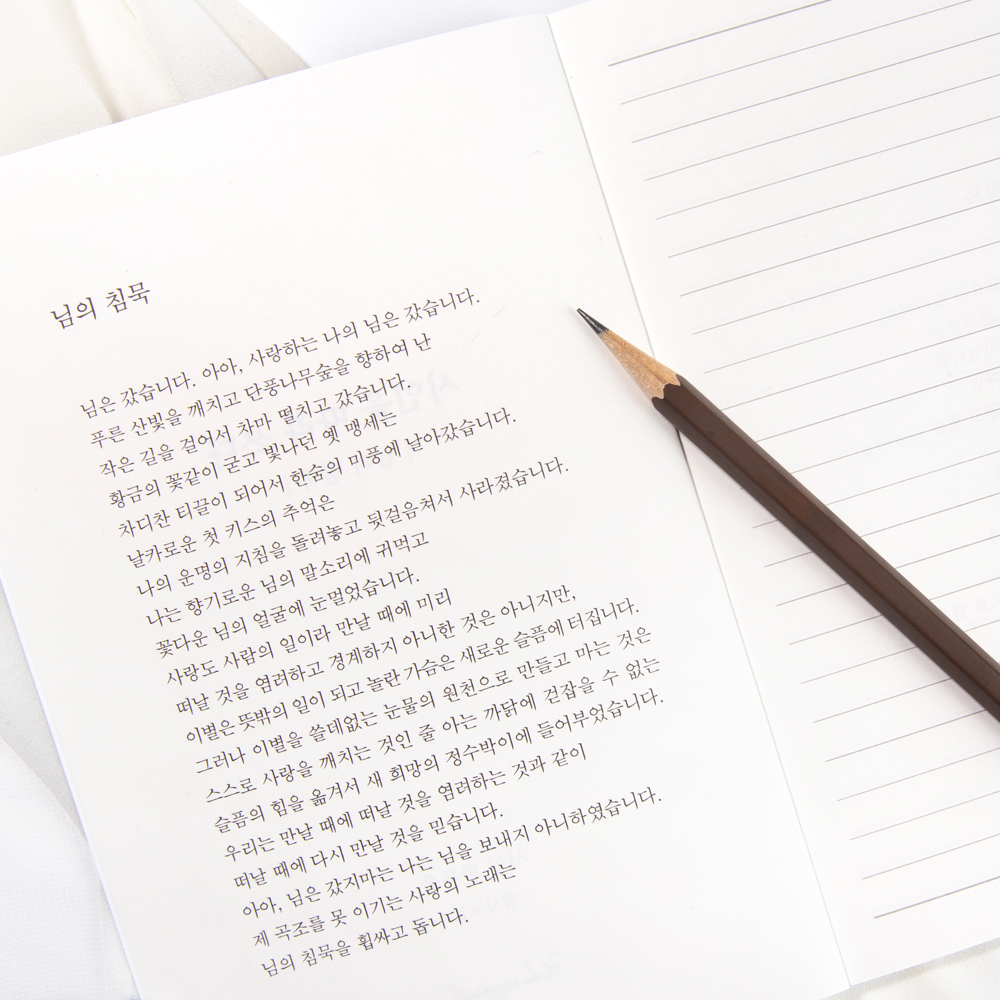 님의 침묵
님은 갔습니다. 아아, 사랑하는 나의 님은 갔습니다.
푸른 산빛을 깨치고 단풍나무숲을 향하여 난
작은 길을 걸어서 차마 떨치고 갔습니다.
황금의 꽃같이 굳고 빛나던 옛 맹세는
차디찬 티끌이 되어서 한숨의 미풍에 날아갔습니다.
날카로운 첫 키스의 추억은
나의 운명의 지침을 돌려놓고 뒷걸음쳐서 사라졌습니다.
나는 향기로운 님의 말소리에 귀먹고
꽃다운 님의 얼굴에 눈멀었습니다.
사랑도 사람의 일이라 만날 때에 미리
떠날 것을 염려하고 경계하지 아니한 것은 아니지만,
이별은 뜻밖의 일이 되고 놀란 가슴은 새로운 슬픔에 터집니다.
그러나 이별을 쓸데없는 눈물의 원천으로 만들고 마는 것은
스스로 사랑을 깨치는 것인 줄 아는 까닭에 걷잡을 수 없는
슬픔의 힘을 옮겨서 새 희망의 정수박이에 들어부었습니다.
우리는 만날 때에 떠날 것을 염려하는 것과 같이
떠날 때에 다시 만날 것을 믿습니다.
아아, 님은 갔지마는 나는 님을 보내지 아니하였습니다.
제 곡조를 못 이기는 사랑의 노래는
님의 침묵을 휩싸고 돕니다.